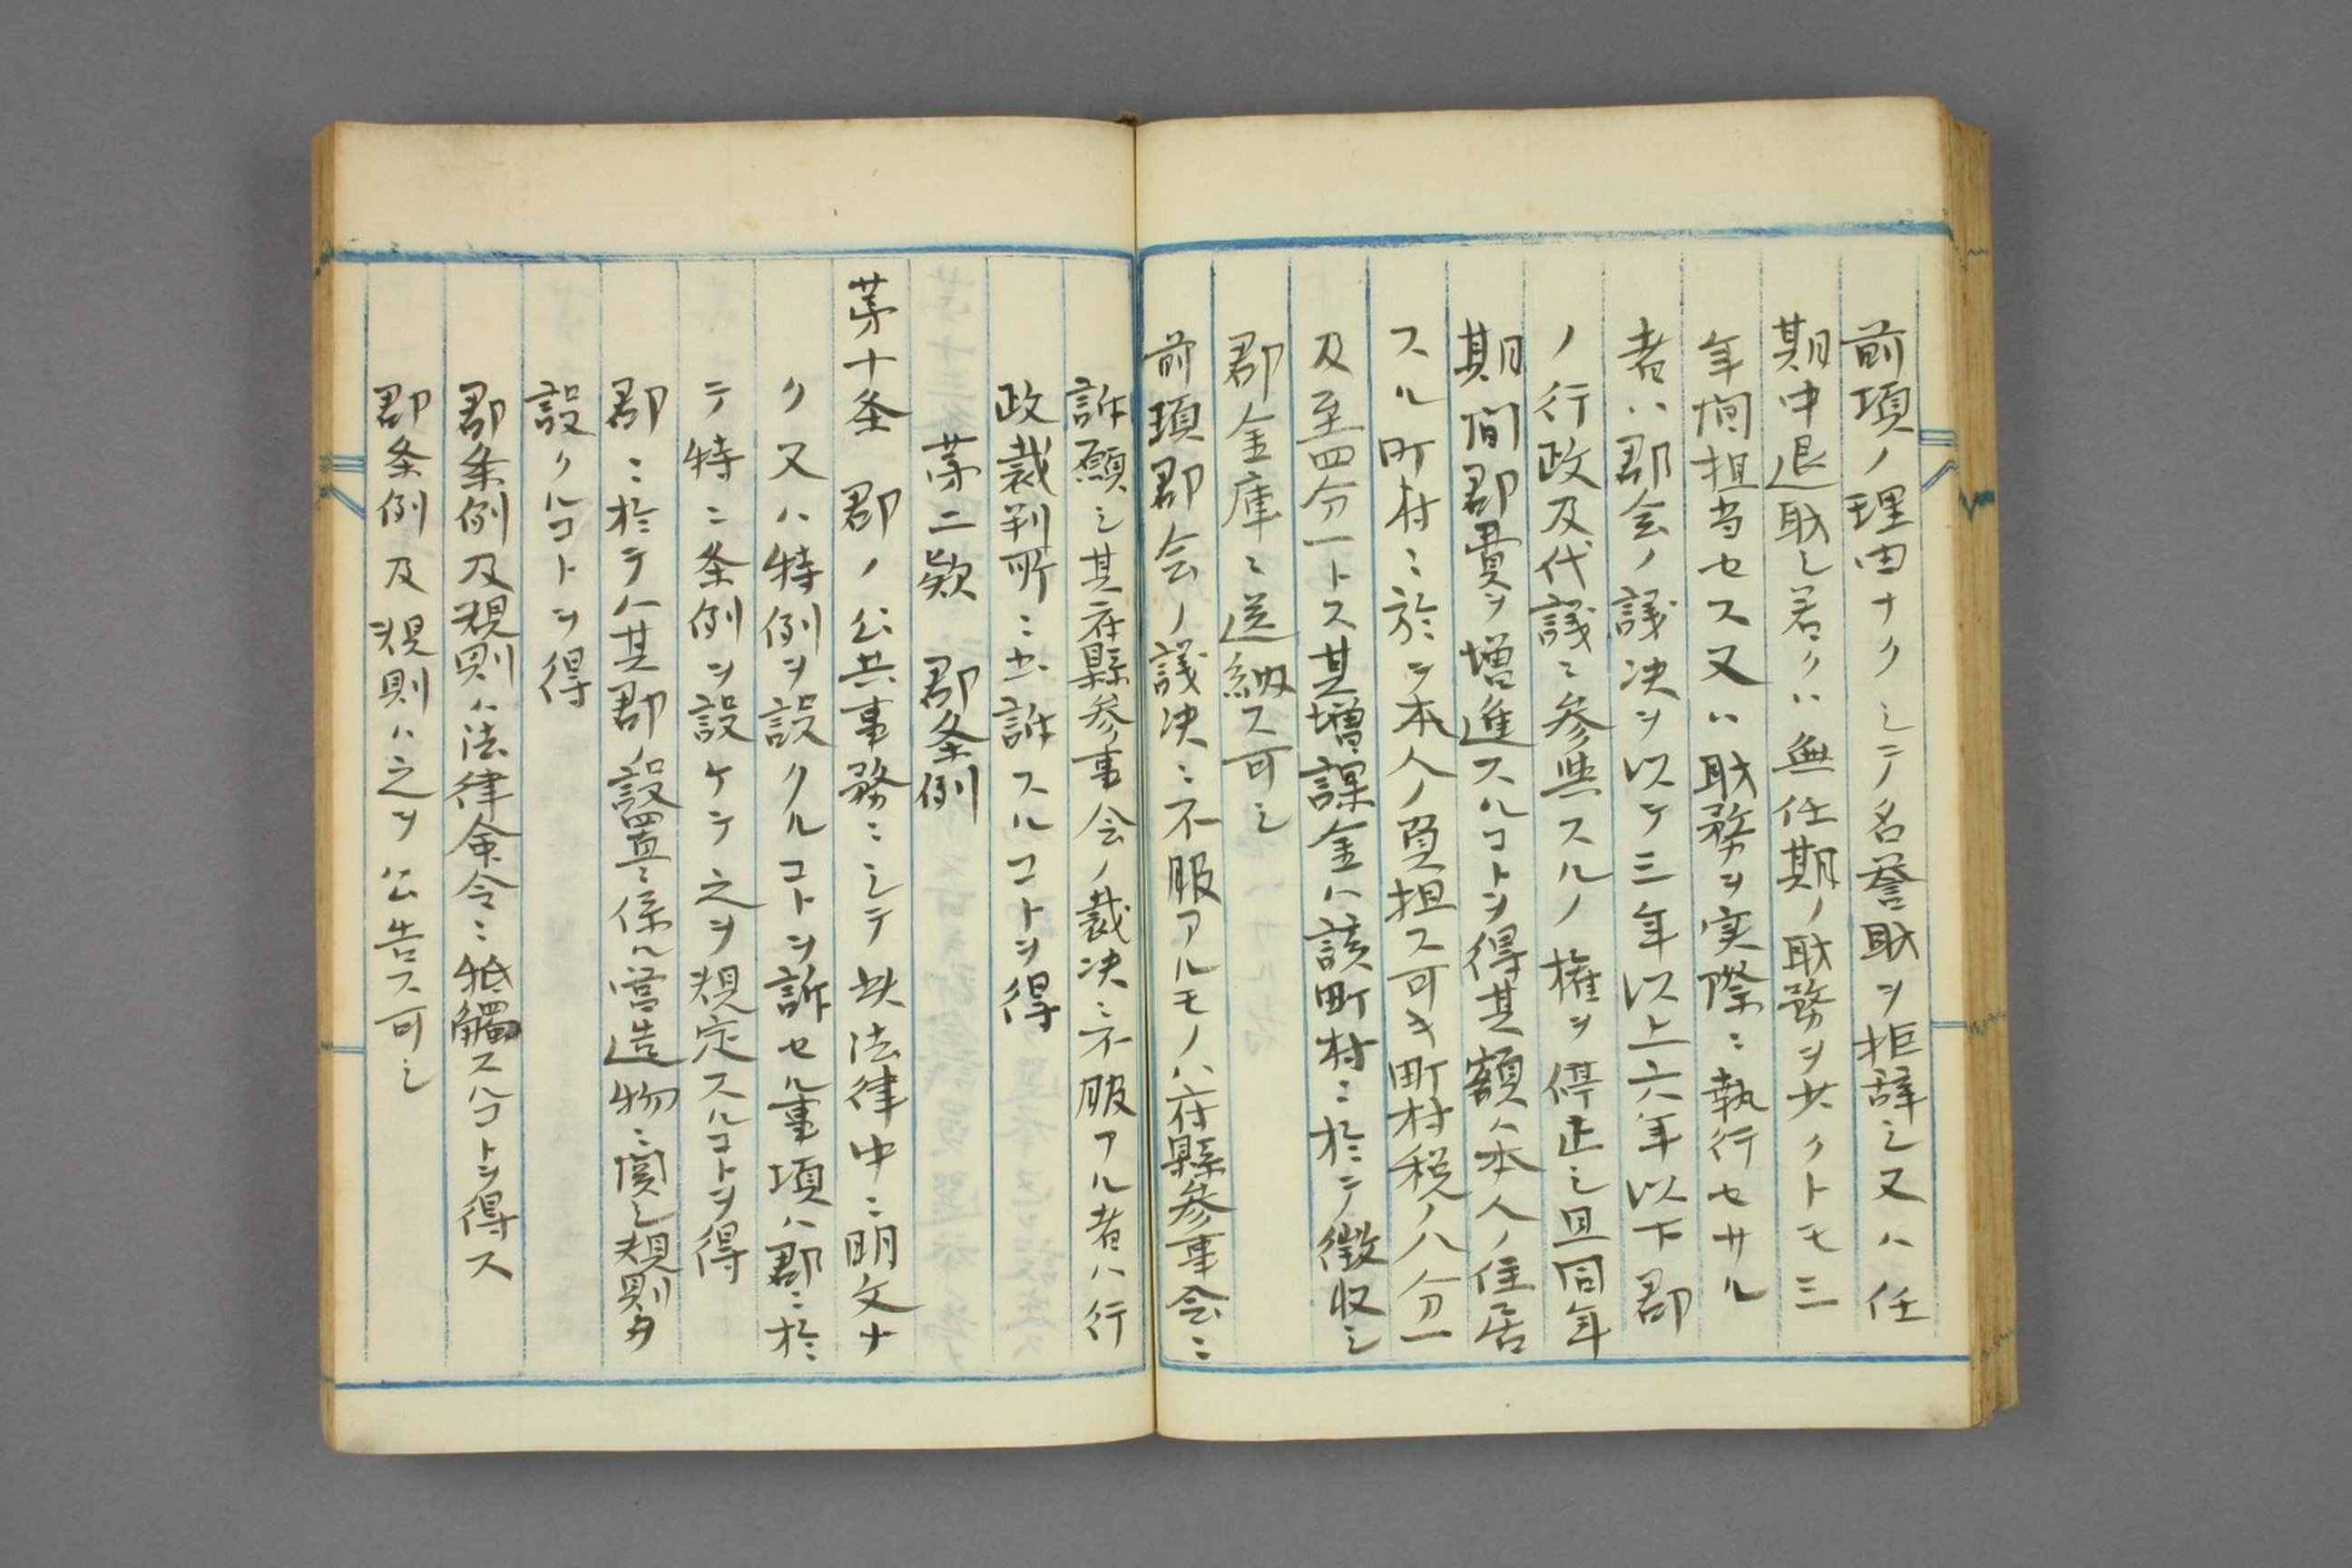 前項ノ理由ナクシテ名誉职ヲ拒辞シ又ハ任
期中退职シ若クハ無任期ノ职務ヲ少クトモ三
年間担当セス又ハ职務ヲ実際ニ執行セサル
者ハ郡会ノ議決ヲ以テ三年以上六年以下郡
ノ行政及代議ニ参與スルノ権ヲ停止シ且同年
期間郡費ヲ増進スルコトヲ得其額ハ本人ノ住居
スル町村ニ於テ本人ノ負担ス可キ町村税ノ八分一
乃至四分一トス其増課金ハ該町村ニ於テ徴収シ
郡金庫ニ送納ス可シ
前項郡会ノ議決ニ不服アルモノハ府縣参事会ニ
訴願シ其府縣参事会ノ裁决ニ不服アル者ハ行
政裁判所ニ出訴スルコトヲ得
第二欵 郡条例
第十条 郡ノ公共事務ニシテ此法律中ニ明文ナ
ク又ハ特例ヲ設クルコトヲ許セル事項ハ郡ニ於
テ特ニ条例ヲ設ケテ之ヲ規定スルコトヲ得
郡ニ於テハ其郡ノ設置ニ係ル営造物ニ関シ規則ヲ
設クルコトヲ得
郡条例及規則ハ法律命令ニ牴觸スルコトヲ得ス
郡条例及規則ハ之ヲ公告ス可シ